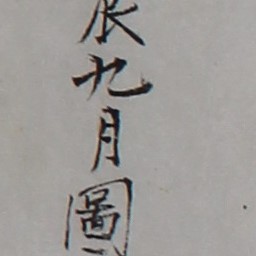 辰九月圖